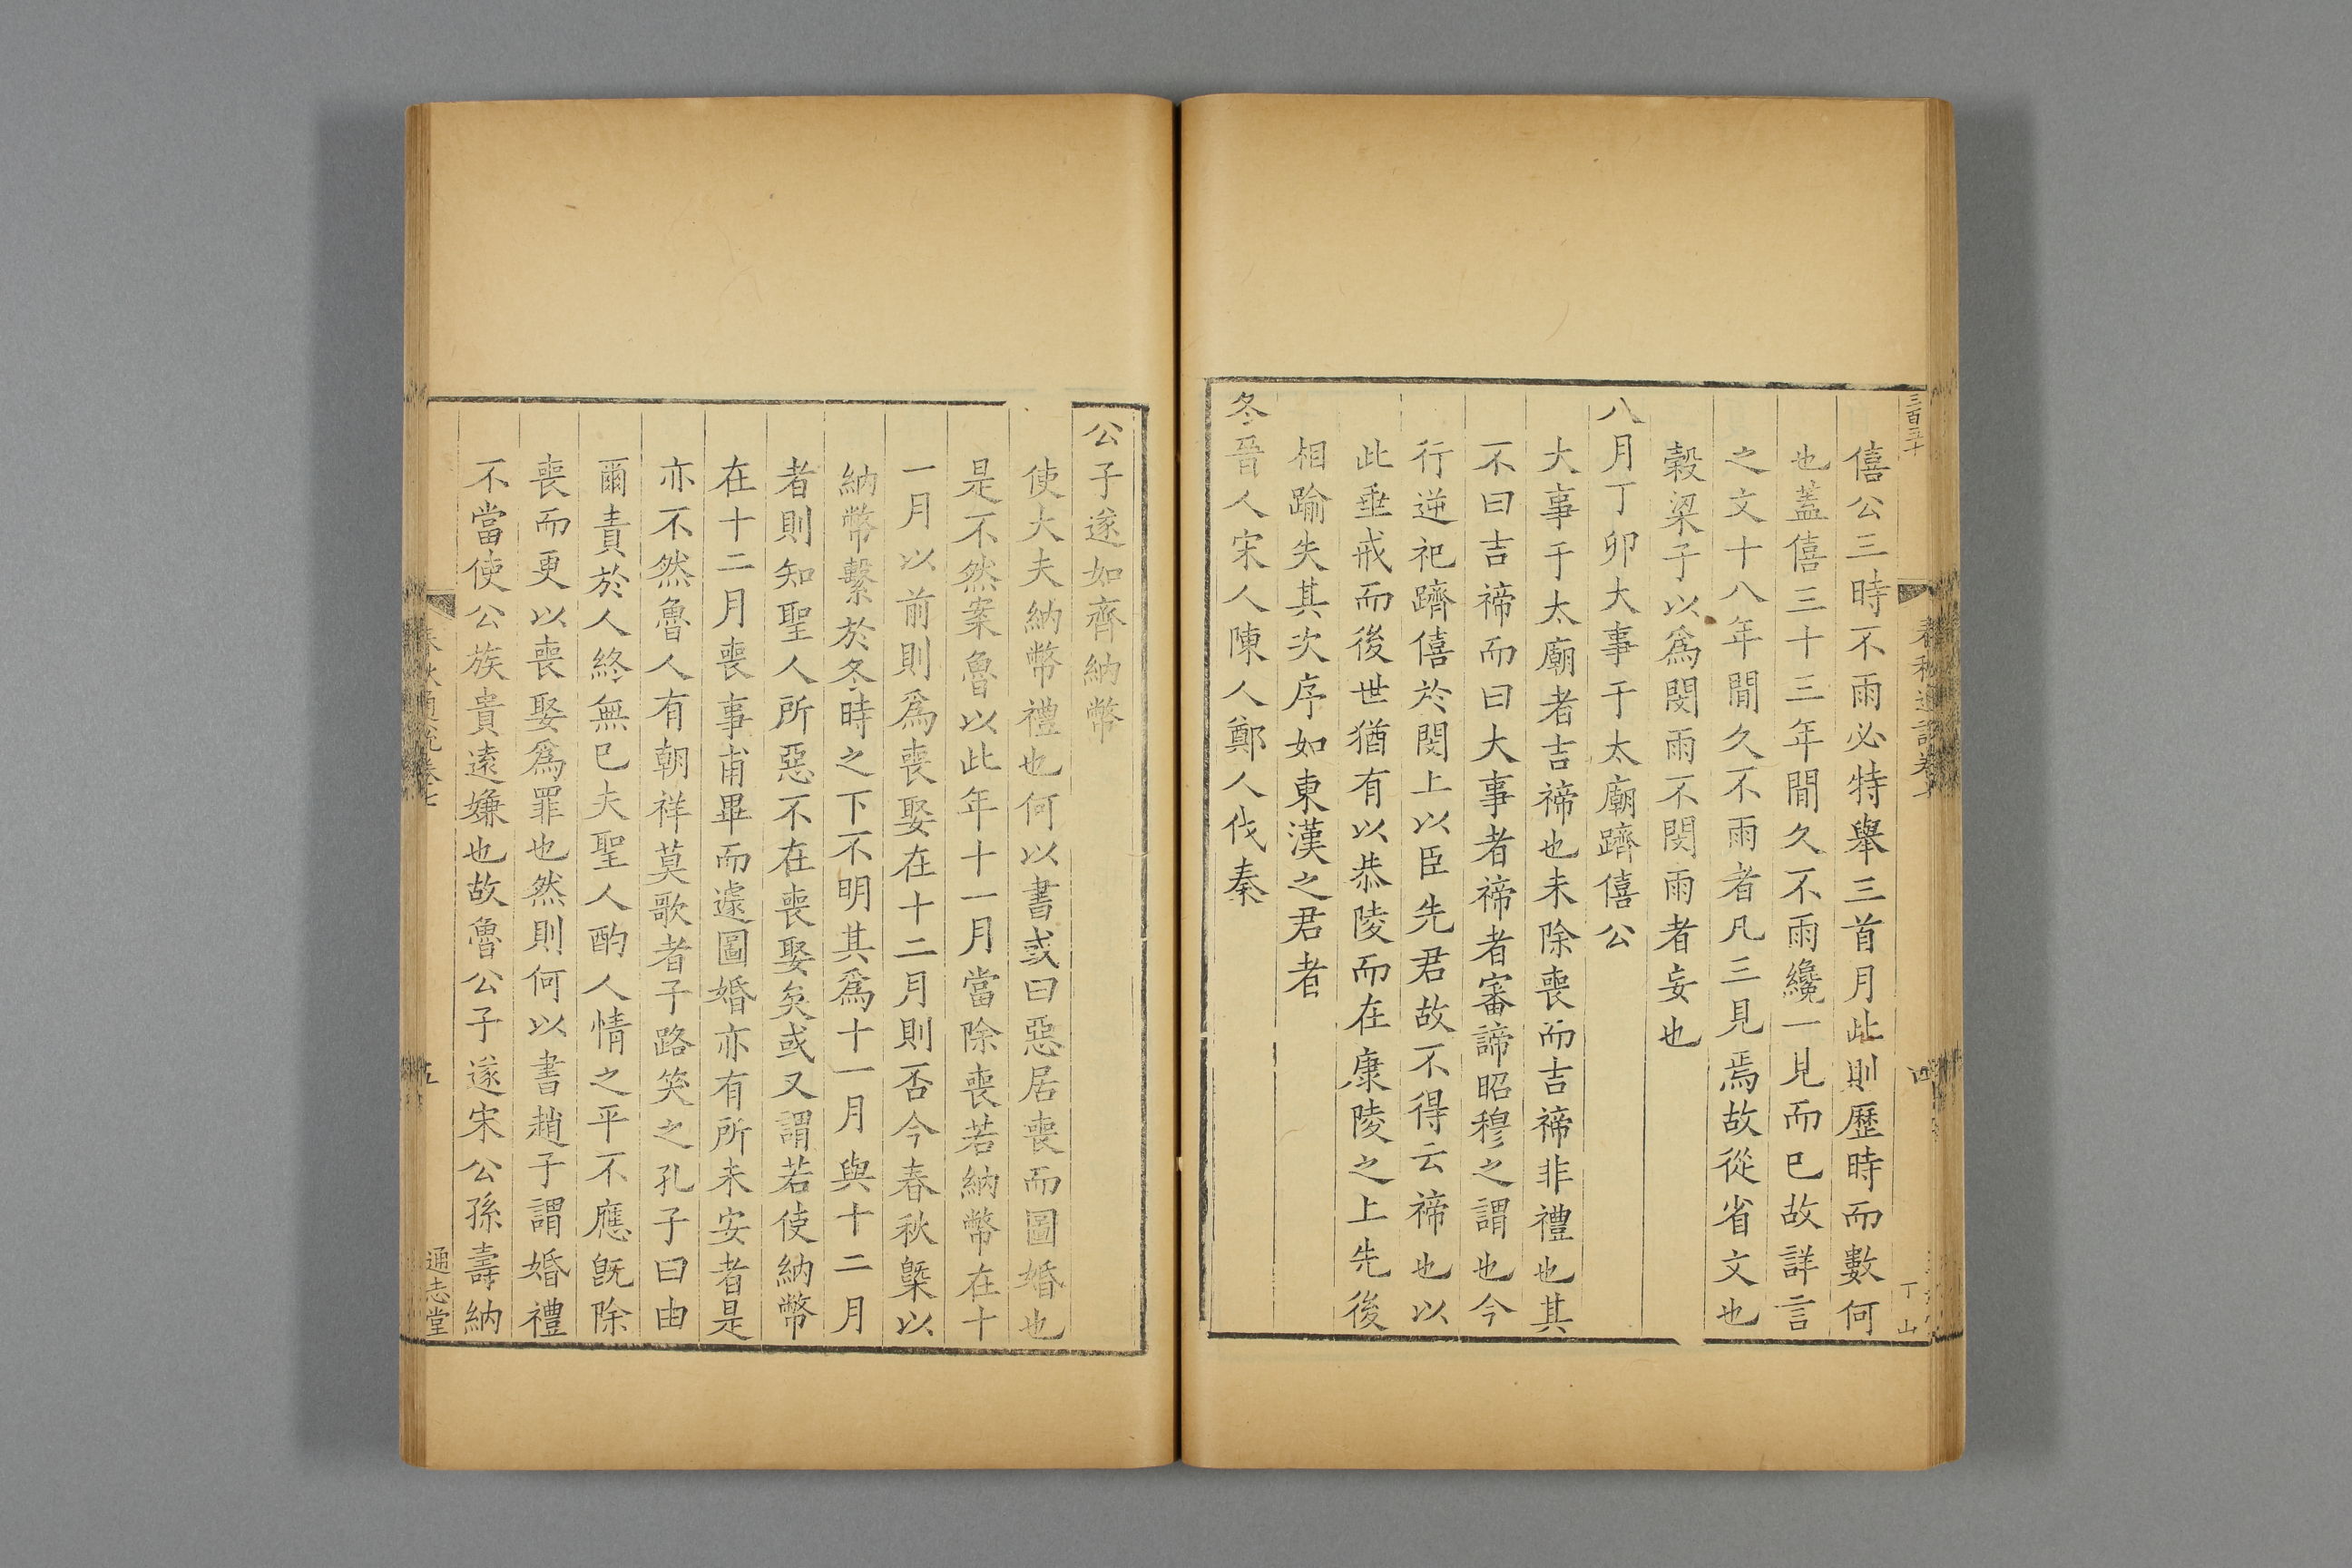 三百五十
僖公三時不雨必特舉三首月此則歷時而數何
也蓋僖三十三年間久不雨纔一見而已故詳言
之文十八年間久不雨者凡三見焉故從省文也
榖梁子以爲閔雨不閔雨者妄也
八月丁卯大事于太廟躋僖公
大事于太廟者吉禘也未除喪而吉禘非禮也其
不曰吉禘而曰大事者禘者審諦昭穆之謂也今
行逆祀躋僖於閔上以臣先君故不得云禘也以
此垂戒而後世猶有以恭陵而在康陵之上先後
相踰失其次序如東漢之君者
冬晉人宋人陳人鄭人伐秦
公子遂如齊納幣
使大夫納幣禮也何以書或曰惡居喪而圖婚也
是不然案魯以此年十一月當除喪若納幣在十
一月以前則爲喪娶在十二月則否今春秋槩以
納幣繫於冬時之下不明其爲十一月與十二月
者則知聖人所惡不在喪娶矣或又謂若使納幣
在十二月喪事甫畢而遽圖婚亦有所未安者是
亦不然魯人有朝祥莫歌者子路笑之孔子曰由
爾責於人終無已夫聖人酌人情之平不應旣除
喪而更以喪娶爲罪也然則何以書趙子謂婚禮
不當使公族貴遠嫌也故魯公子遂宋公孫壽納
春秋通說卷七
五
通志堂